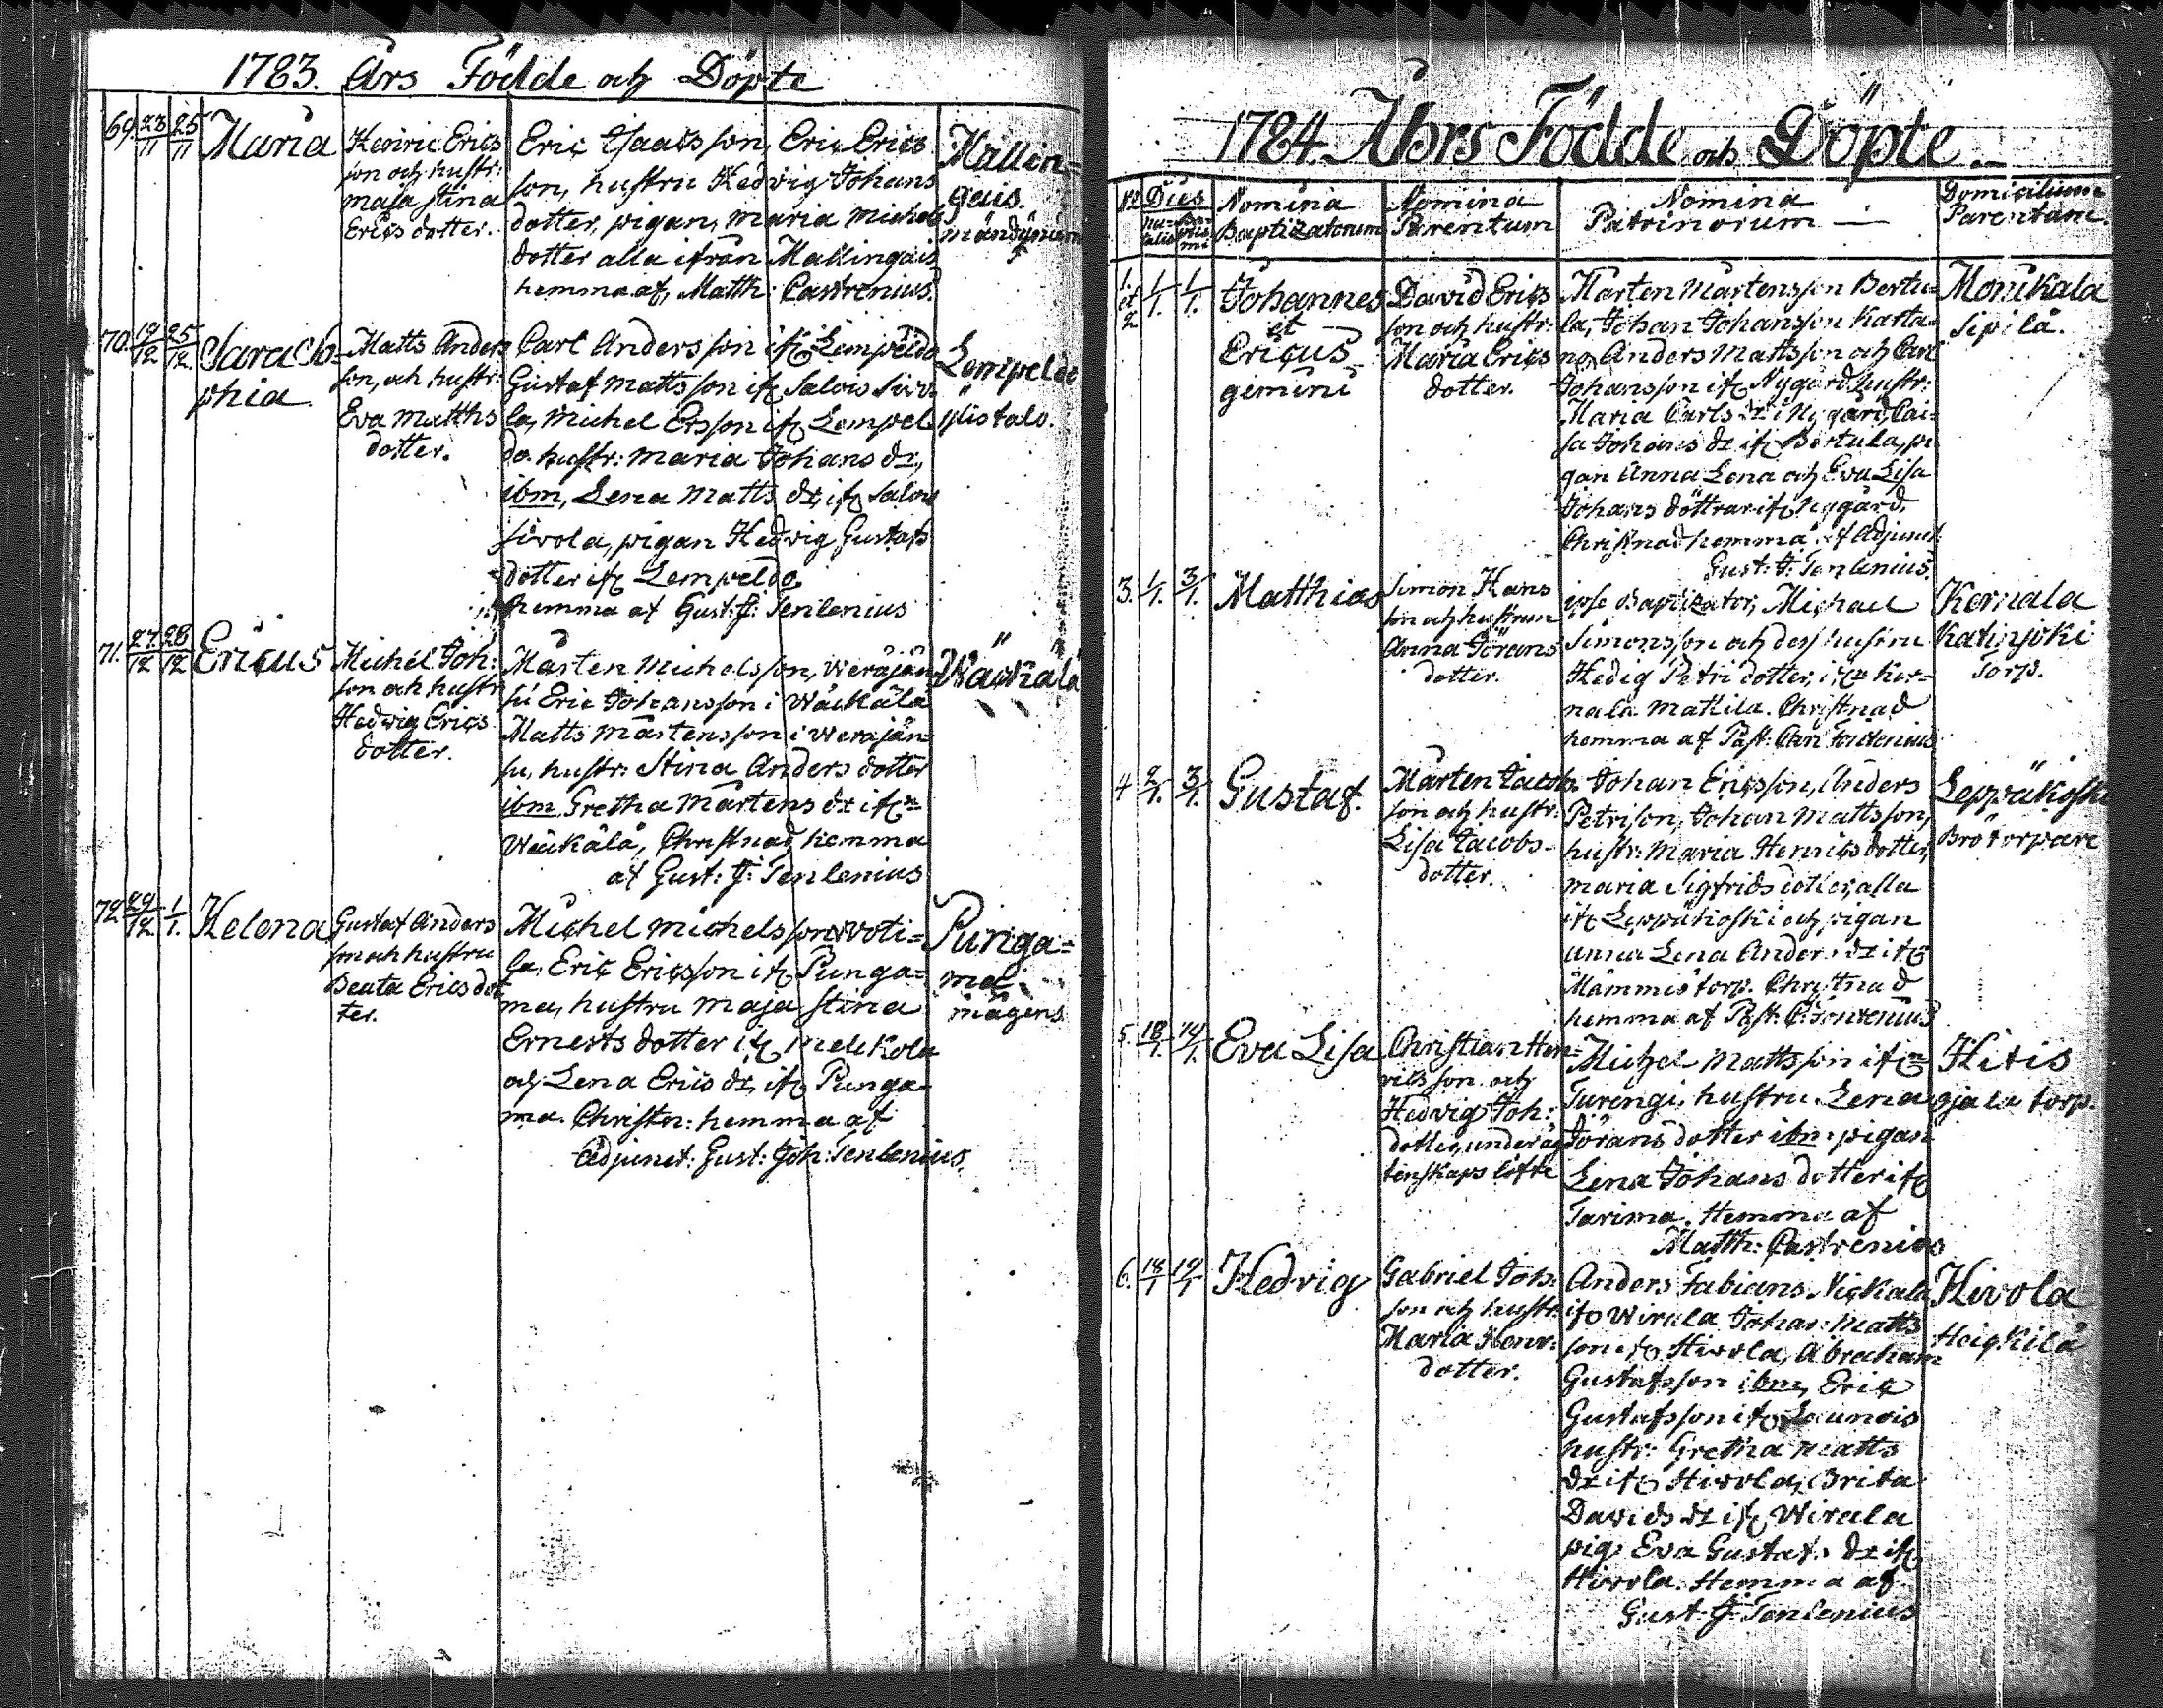 1783. Års Födde och Döpte
69. 23/11 25/11 Maria
Henric Erics
son och hustr:
maja stina
Erics dotter.
Eric Isaacs son, Eric Erics
son, hustru Hedvig Johans
dotter, pigan, maria michels
dotter alla ifrån Mallingais
hemma af, Matth: Castrenius.
Mallin=
gais.
70. 19/12 25/12 Sara So-
phia
Matts Anders
son, och hustr:
Eva Matths
dotter.
Carl Andersson if: Lempeldo
Gustaf Mattsson if: Salois Siv
la, Michel Ersson if: Lempel
do. hustr: Maria Johans dr,
ibm, Lena Matts dr, if: Salois
sivola, pigan Hedvig Gustafs
dotter if: Lempeldo
hemma af Gust: J: Tenlenius
Lempeldo
pistolo.
71. 27/12 28/12 Ericus
Michel Joh:
son och hustr
Hedvig Erics
dotter.
Mårten Michelsson, Weräjän
su Eric Johansson i Wäckälä
Matts Mårtensson i Weräjän=
su, hustr: Stina Anders dotter
ibm Gretha Mårtens dr if:
Wäckälä, Christnad hemma
af Gust: J: Tenlenius
Wäckälä
72 29/12 1/1. Helena
Gustaf Anders
son och hustru
Beata Erics dot
ter.
Michel michelsson woti=
la, Eric Ericsson if: Punga=
ma, hustru maja stina
Ernests dotter if: Mellkola
och Lena Erics dr, if: Punga=
ma. Christn: hemma af
Adjunct: Gust: Joh: Tenlenius.
Punga=
ma
mågens
1784. Åhrs Födde och Döpte.
Dies
Nomina
Baptizatorum
Nomina
Parentum
Nomina
Patrinorum
Domicilium
Parentum
1. et 2 1/1. 1/1. Johannes
et
Ericus
gemini
David Erics
son och hustr:
Maria Erics
dotter.
Mårten Mårtensson Bertu=
la, Johan Johansson Karta
no, Anders Mattsson och Carl
Johansson if: Nygård, hustr:
Maria Carls dr i Nygård, Cai=
sa Johans dr if: Bertula, pi
gan Anna Lena och Eva Lisa
Johans döttrar if: Nygård,
Christnad hemma af Adjunct:
Gust: J: Tenlenius.
Monikala
Sipilä.
3. 1/1. 3/1. Matthias
Simon Hans
son och hustrun
Anna Jörans
dotter.
ipse Baptizator, Michael
Simonsson och dess hustru
Hedig Petri dotter, if: Ker=
nala Mattila. Christnad
hemma af Past:
Kernala
Katinjoki
Torp.
4 2/1. 3/1. Gustaf.
Mårten Jacobs
son och hustr:
Lisa Jacobs-
dotter.
Johan Ericsson, Anders
Petrison, Johan Mattsson,
hustr: Maria Henrics dotter,
maria Sigfrids dotter, alla
if: Leppäkoski och pigan
Anna Lena Anders dr if:
Mämmis torp. Christnad
hemma af Past:
Leppäkoski
Brotorpare
5. 18/1. 19/1. Eva Lisa
Christian Hen=
rics son och
Hedvig Joh:
dotter, under äg
tenskaps löfte
Michel Mattsson if:
Turengi, hustru Lena
Jörans dotter ibm pigan
Lena Johans dotter if:
Tarima. Hemma af
Matth: Castrenius
Hitis
gjala torp.
6. 18/1 19/1 Hedvig
Gabriel Joh:
son och hustr:
Maria Henr:
dotter.
Anders Fabians Nickala
if: Wirala Johan Matts
son if: Hivola, Abraham
Gustafsson ibm, Eric
Gustafsson if: Launois
hustr: Gretha Matts
dr if: Hivola, Brita
Davids dr if: Wirala
pig: Eva Gustafs dr if:
Hivola. Hemma af
Gust: J: Tenlenius
Hivola
Heickilä